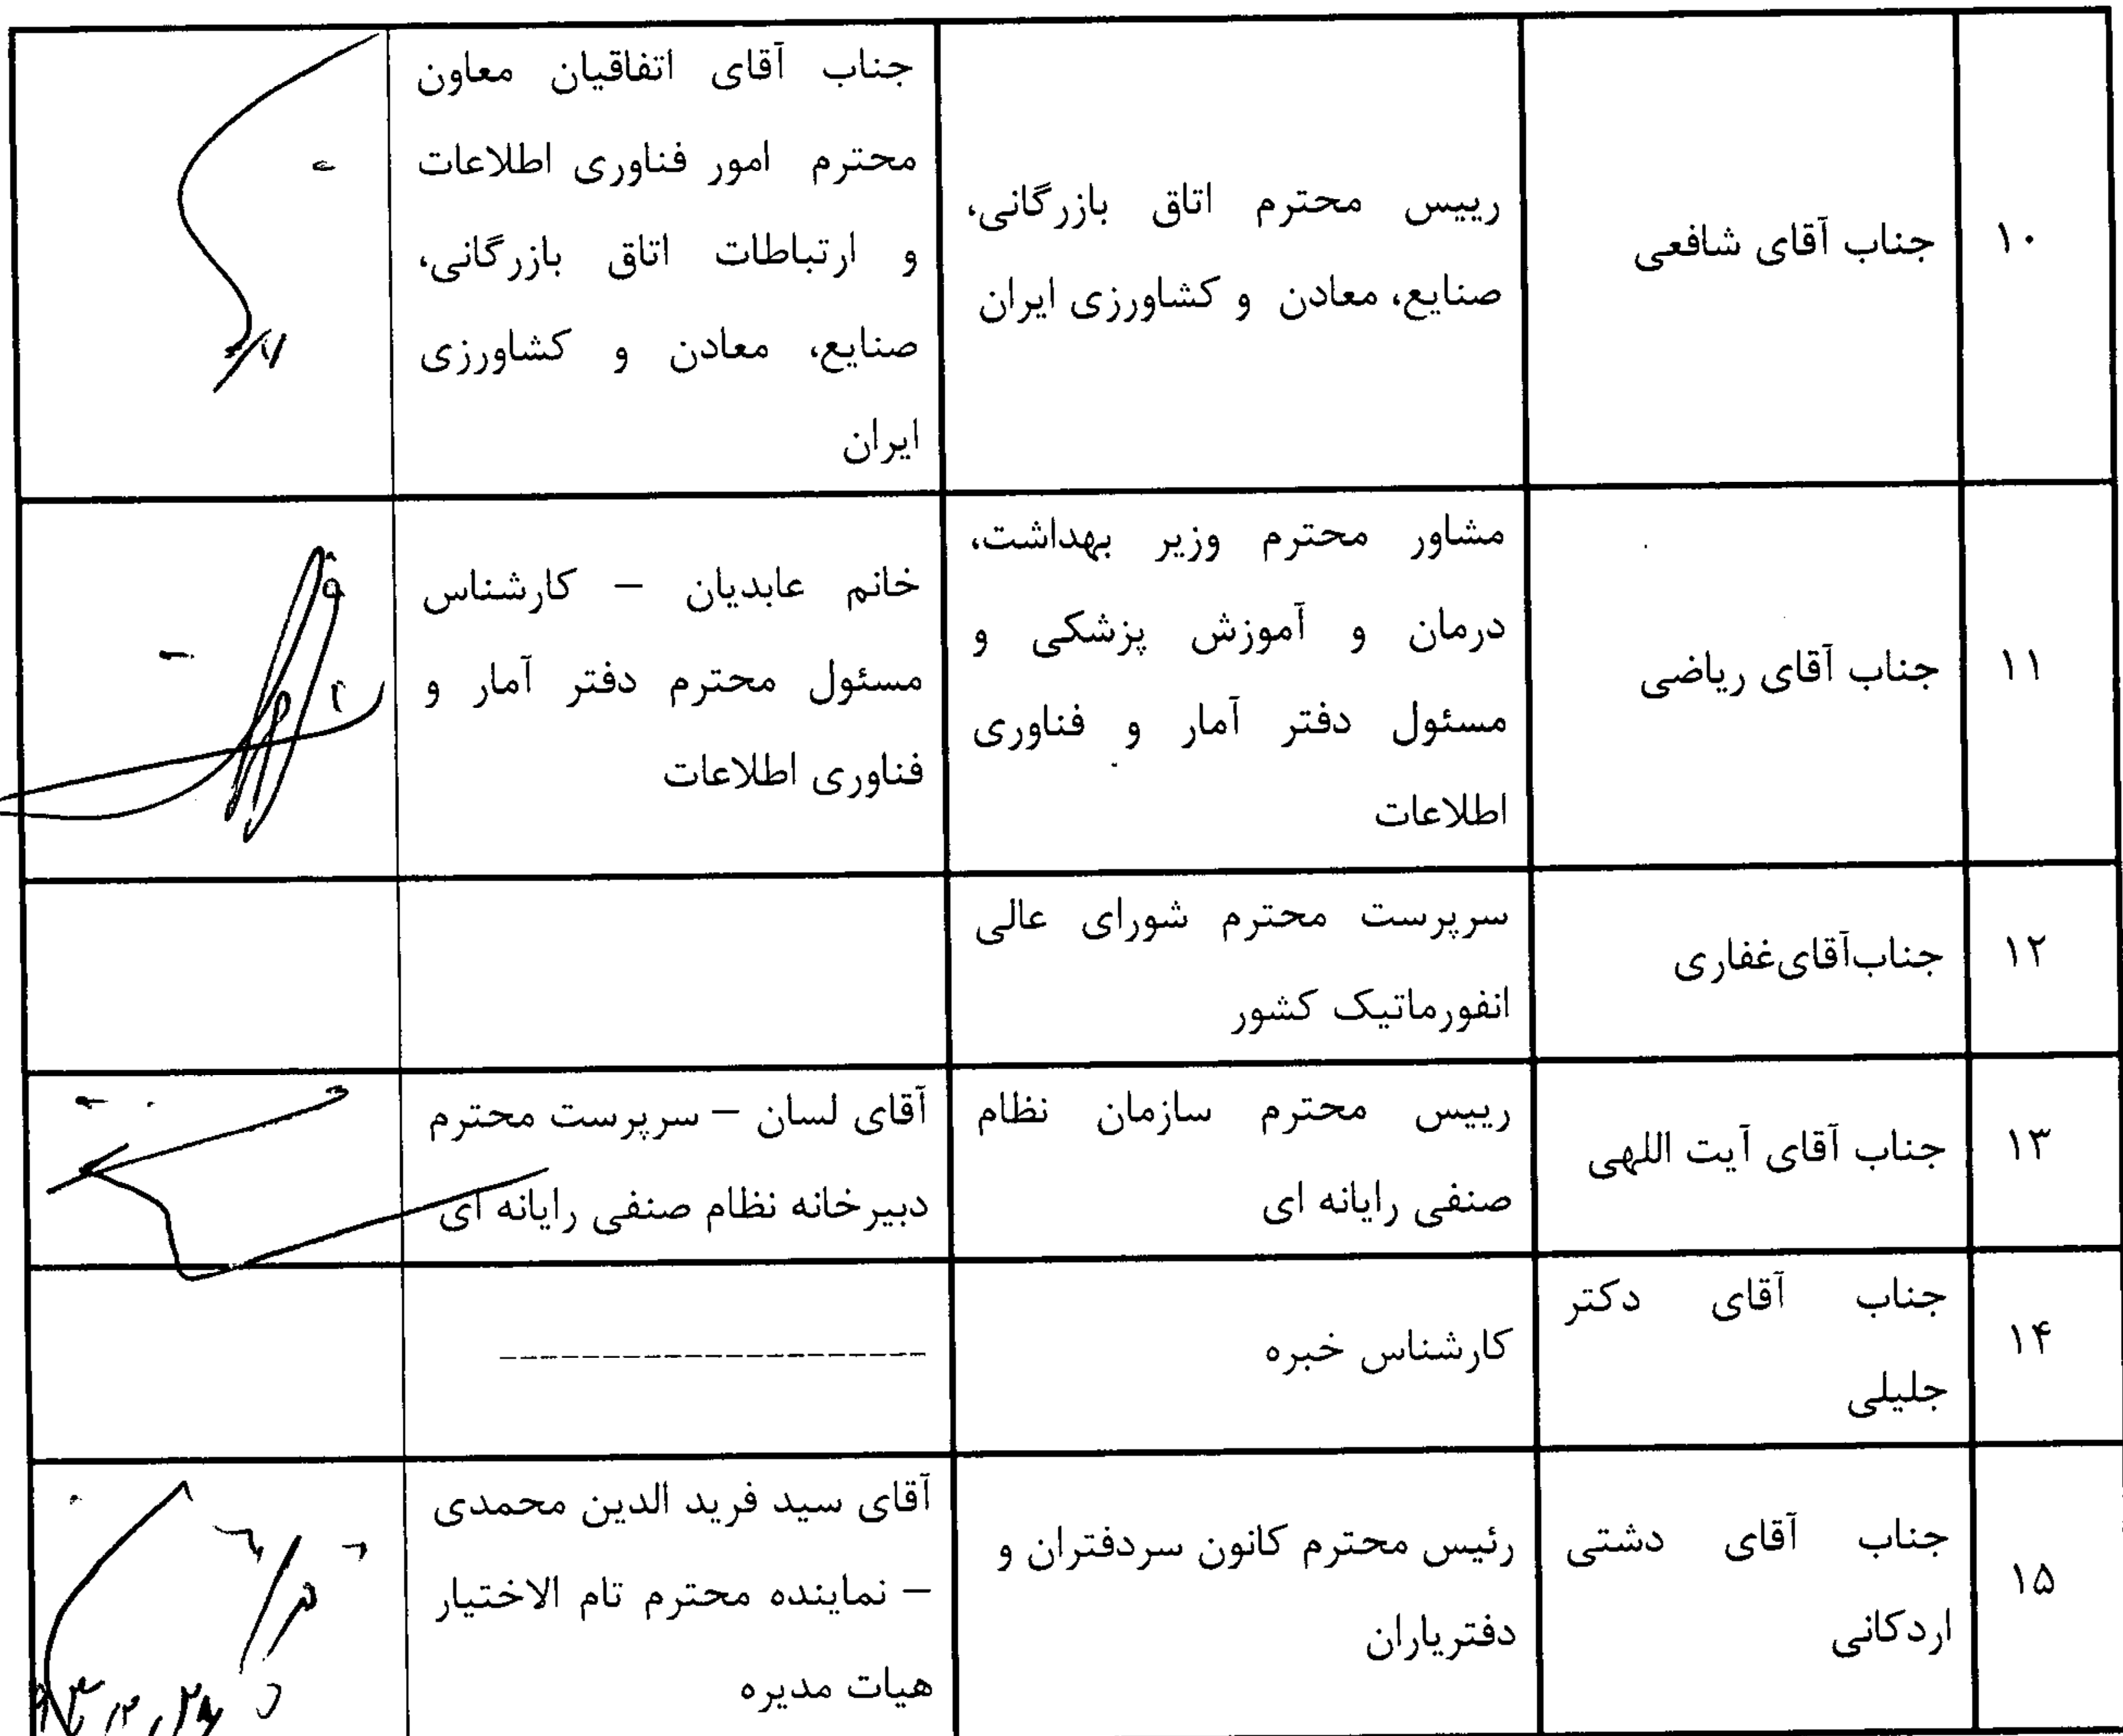 ۱۰
جناب آقای شافعی
رییس محترم اتاق بازرگانی،
صنایع، معادن و کشاورزی ایران
جناب آقای اتفاقیان معاون
محترم امور فناوری اطلاعات
و ارتباطات اتاق بازرگانی،
صنایع، معادن و کشاورزی
ایران
۱۱
جناب آقای ریاضی
مشاور محترم وزیر بهداشت،
درمان و آموزش پزشکی و
مسئول دفتر آمار و فناوری
اطلاعات
خانم عابدیان – کارشناس
مسئول محترم دفتر آمار و
فناوری اطلاعات
۱۲
جناب‌آقای‌غفاری
سرپرست محترم شورای عالی
انفورماتیک کشور
۱۳
جناب آقای آیت اللهی
رییس محترم سازمان نظام
صنفی رایانه ای
آقای لسان – سرپرست محترم
دبیرخانه نظام صنفی رایانه ای
۱۴
جناب آقای دکتر
جلیلی
کارشناس خبره
--------------------
۱۵
جناب آقای دشتی
اردکانی
رئیس محترم کانون سردفتران و
دفتریاران
آقای سید فرید الدین محمدی
– نماینده محترم تام الاختیار
هیات مدیره